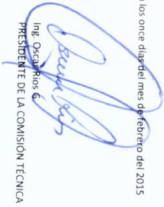 los once días del mes de febrero del 2015
Ing. Oscar Ríos G.
PRESIDENTE DE LA COMISIÓN TÉCNICA